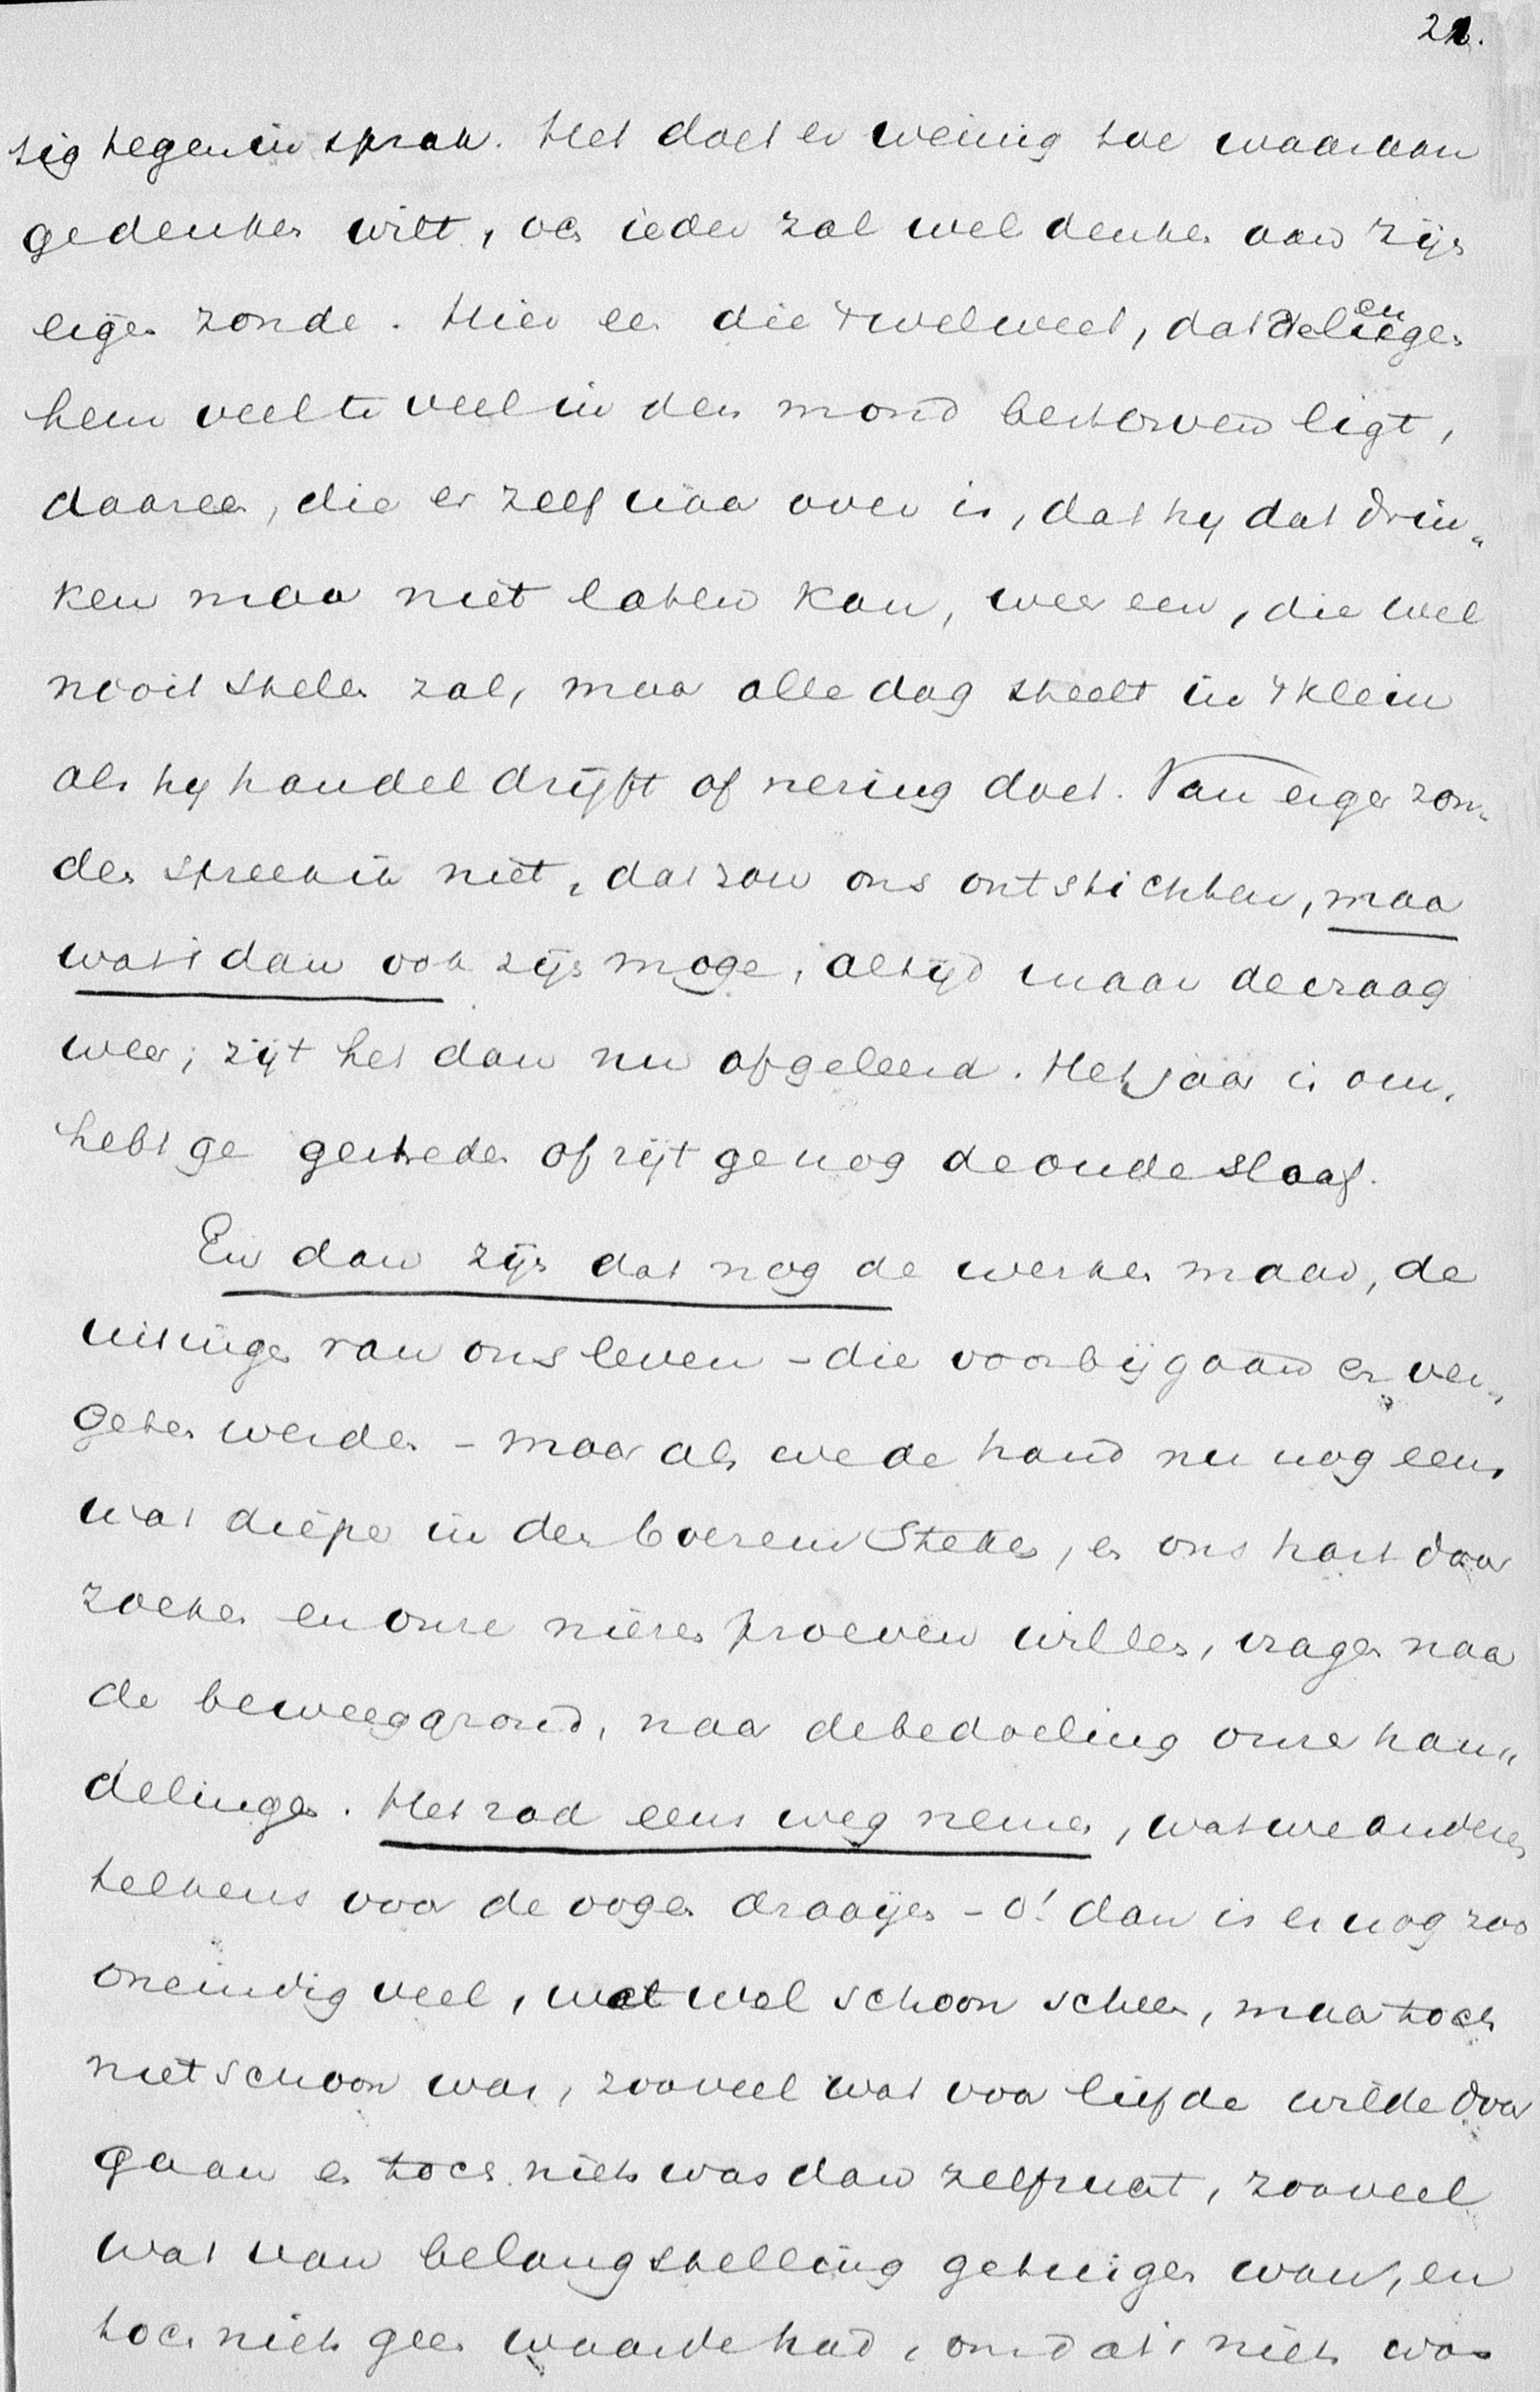 21.
tig tegen in sprak. Het doet er weinig toe waaraan
gedenken wilt, och ieder zal wel denken aan zijn
eigen zonde. Hier een die 't wel weet, dat de leugen
hem veel te veel in den mond bestorven ligt,
daar een, die er zelf naar over is, dat hy dat drin„
ken maar niet laten kan, weer een, die wel
nooit stelen zal, maar alle dag steelt in 't klein
als hy handel drijft of nering doet. Van eigen zon„
den spreek ik niet, dat zou ons ontstichten, maar
wat 't dan ook zijn moge, altijd maar de vraag
weer, zijt het dan nu afgeleerd. Het jaar is om,
hebt ge gestreden of zijt ge nog de oude slaaf.
En dan zijn dat nog de werken maar, de
uitingen van ons leven – die voorbijgaan en ver„
geten werden – maar als we de hand nu nog eens
wat dieper in den boezem steken, en ons hart door
zoeken en onze nieren proeven willen, vragen naar
de beweeggrond, naar de bedoeling onzer han„
delingen. Het rad eens weg nemen, wat we anderen
telkens voor de oogen draaijen – o! dan is er nog zoo
oneindig veel, wat wel schoon scheen, maar toch
niet schoon was, zooveel wat voor liefde wilde door
gaan en toch niets was dan zelfzucht, zooveel
wat van belangstelling getuigen wou, en
toch niets geen waarde had, omdat 't niets was